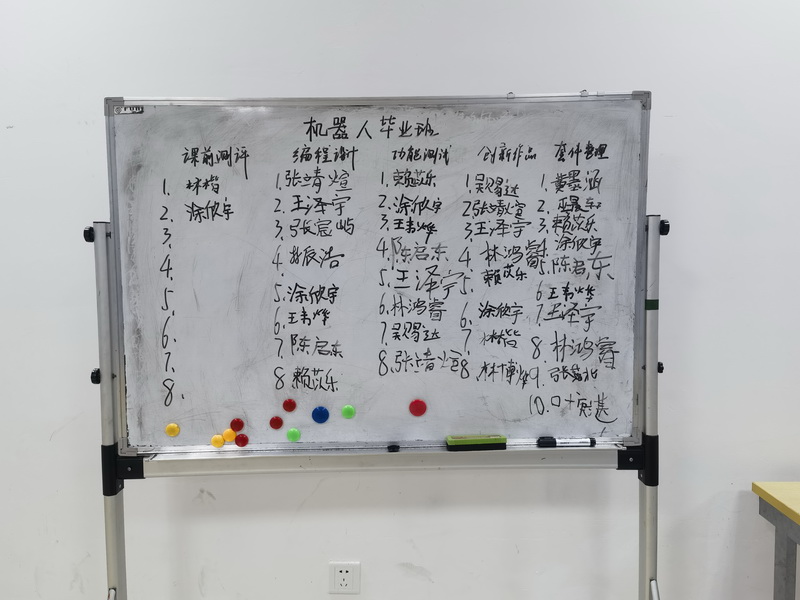 机器人毕业班
课前测评
1. 林楷
2. 涂欣宇
3.
4.
5.
6.
7.
8.
编程设计
1. 张靖煊
2. 王泽宇
3. 张宸屿
4.
5. 涂欣宇
6. 王韦烨
7. 陈启东
8. 赖苡乐
功能测试
1. 赖苡乐
2. 涂欣宇
3. 王韦烨
4. 陈启东
5. 王泽宇
6. 林鸿睿
7. 吴易达
8. 张靖煊
创新作品
1. 吴易达
2. 张靖煊
3. 王泽宇
4. 林鸿睿
5. 赖苡乐
6. 涂欣宇
7. 林楷
8. 林博
套件整理
1. 黄墨涵
2.
3. 赖苡乐
4. 涂欣宇
5. 陈启东
6. 王韦烨
7. 王泽宇
8. 林鸿睿
9. 张
10.